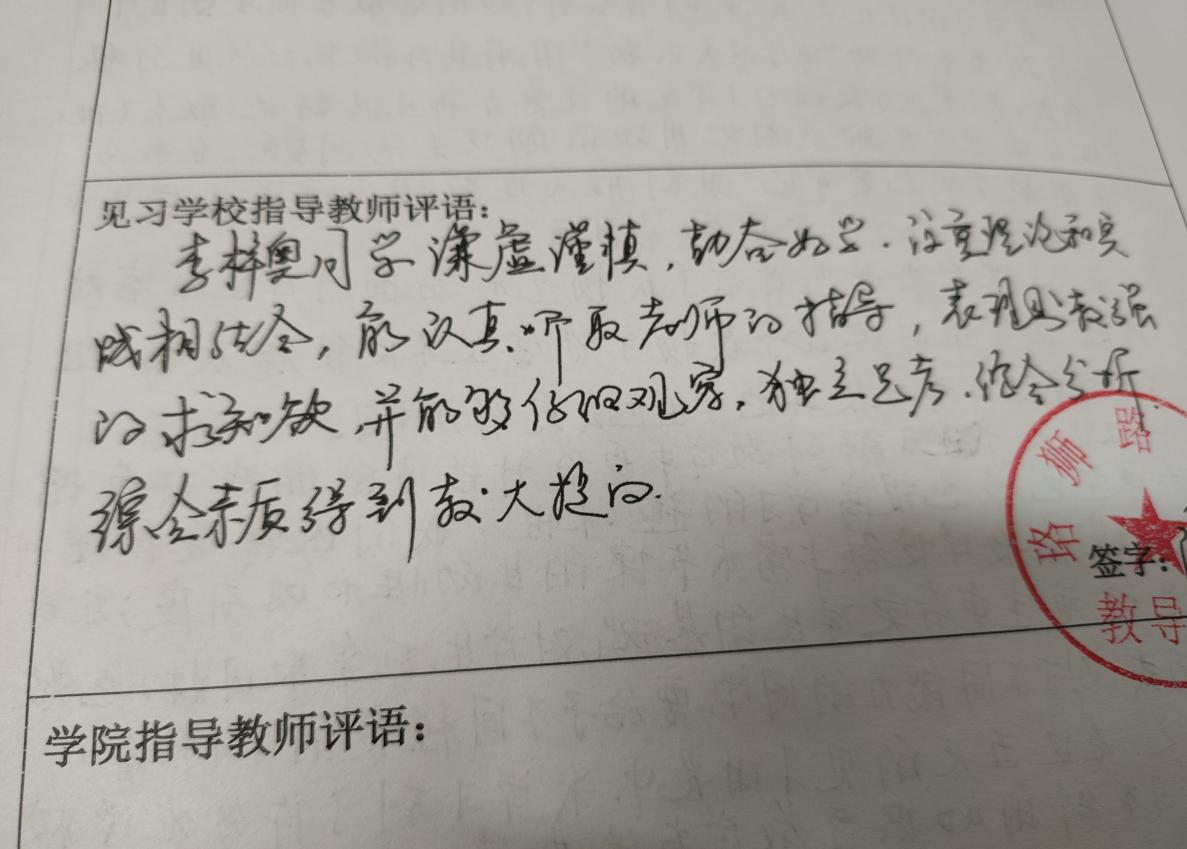 见习学校指导教师评语：
李梓奥同学谦虚谨慎，勤奋好学．注重理论和实
践相结合，能认真听取老师的指导，表现出较强
的求知欲，并能够仔细观察，独立思考．综合分析．
综合素质得到较大提高．
狮
路
珞
签字：
教导
学院指导教师评语：